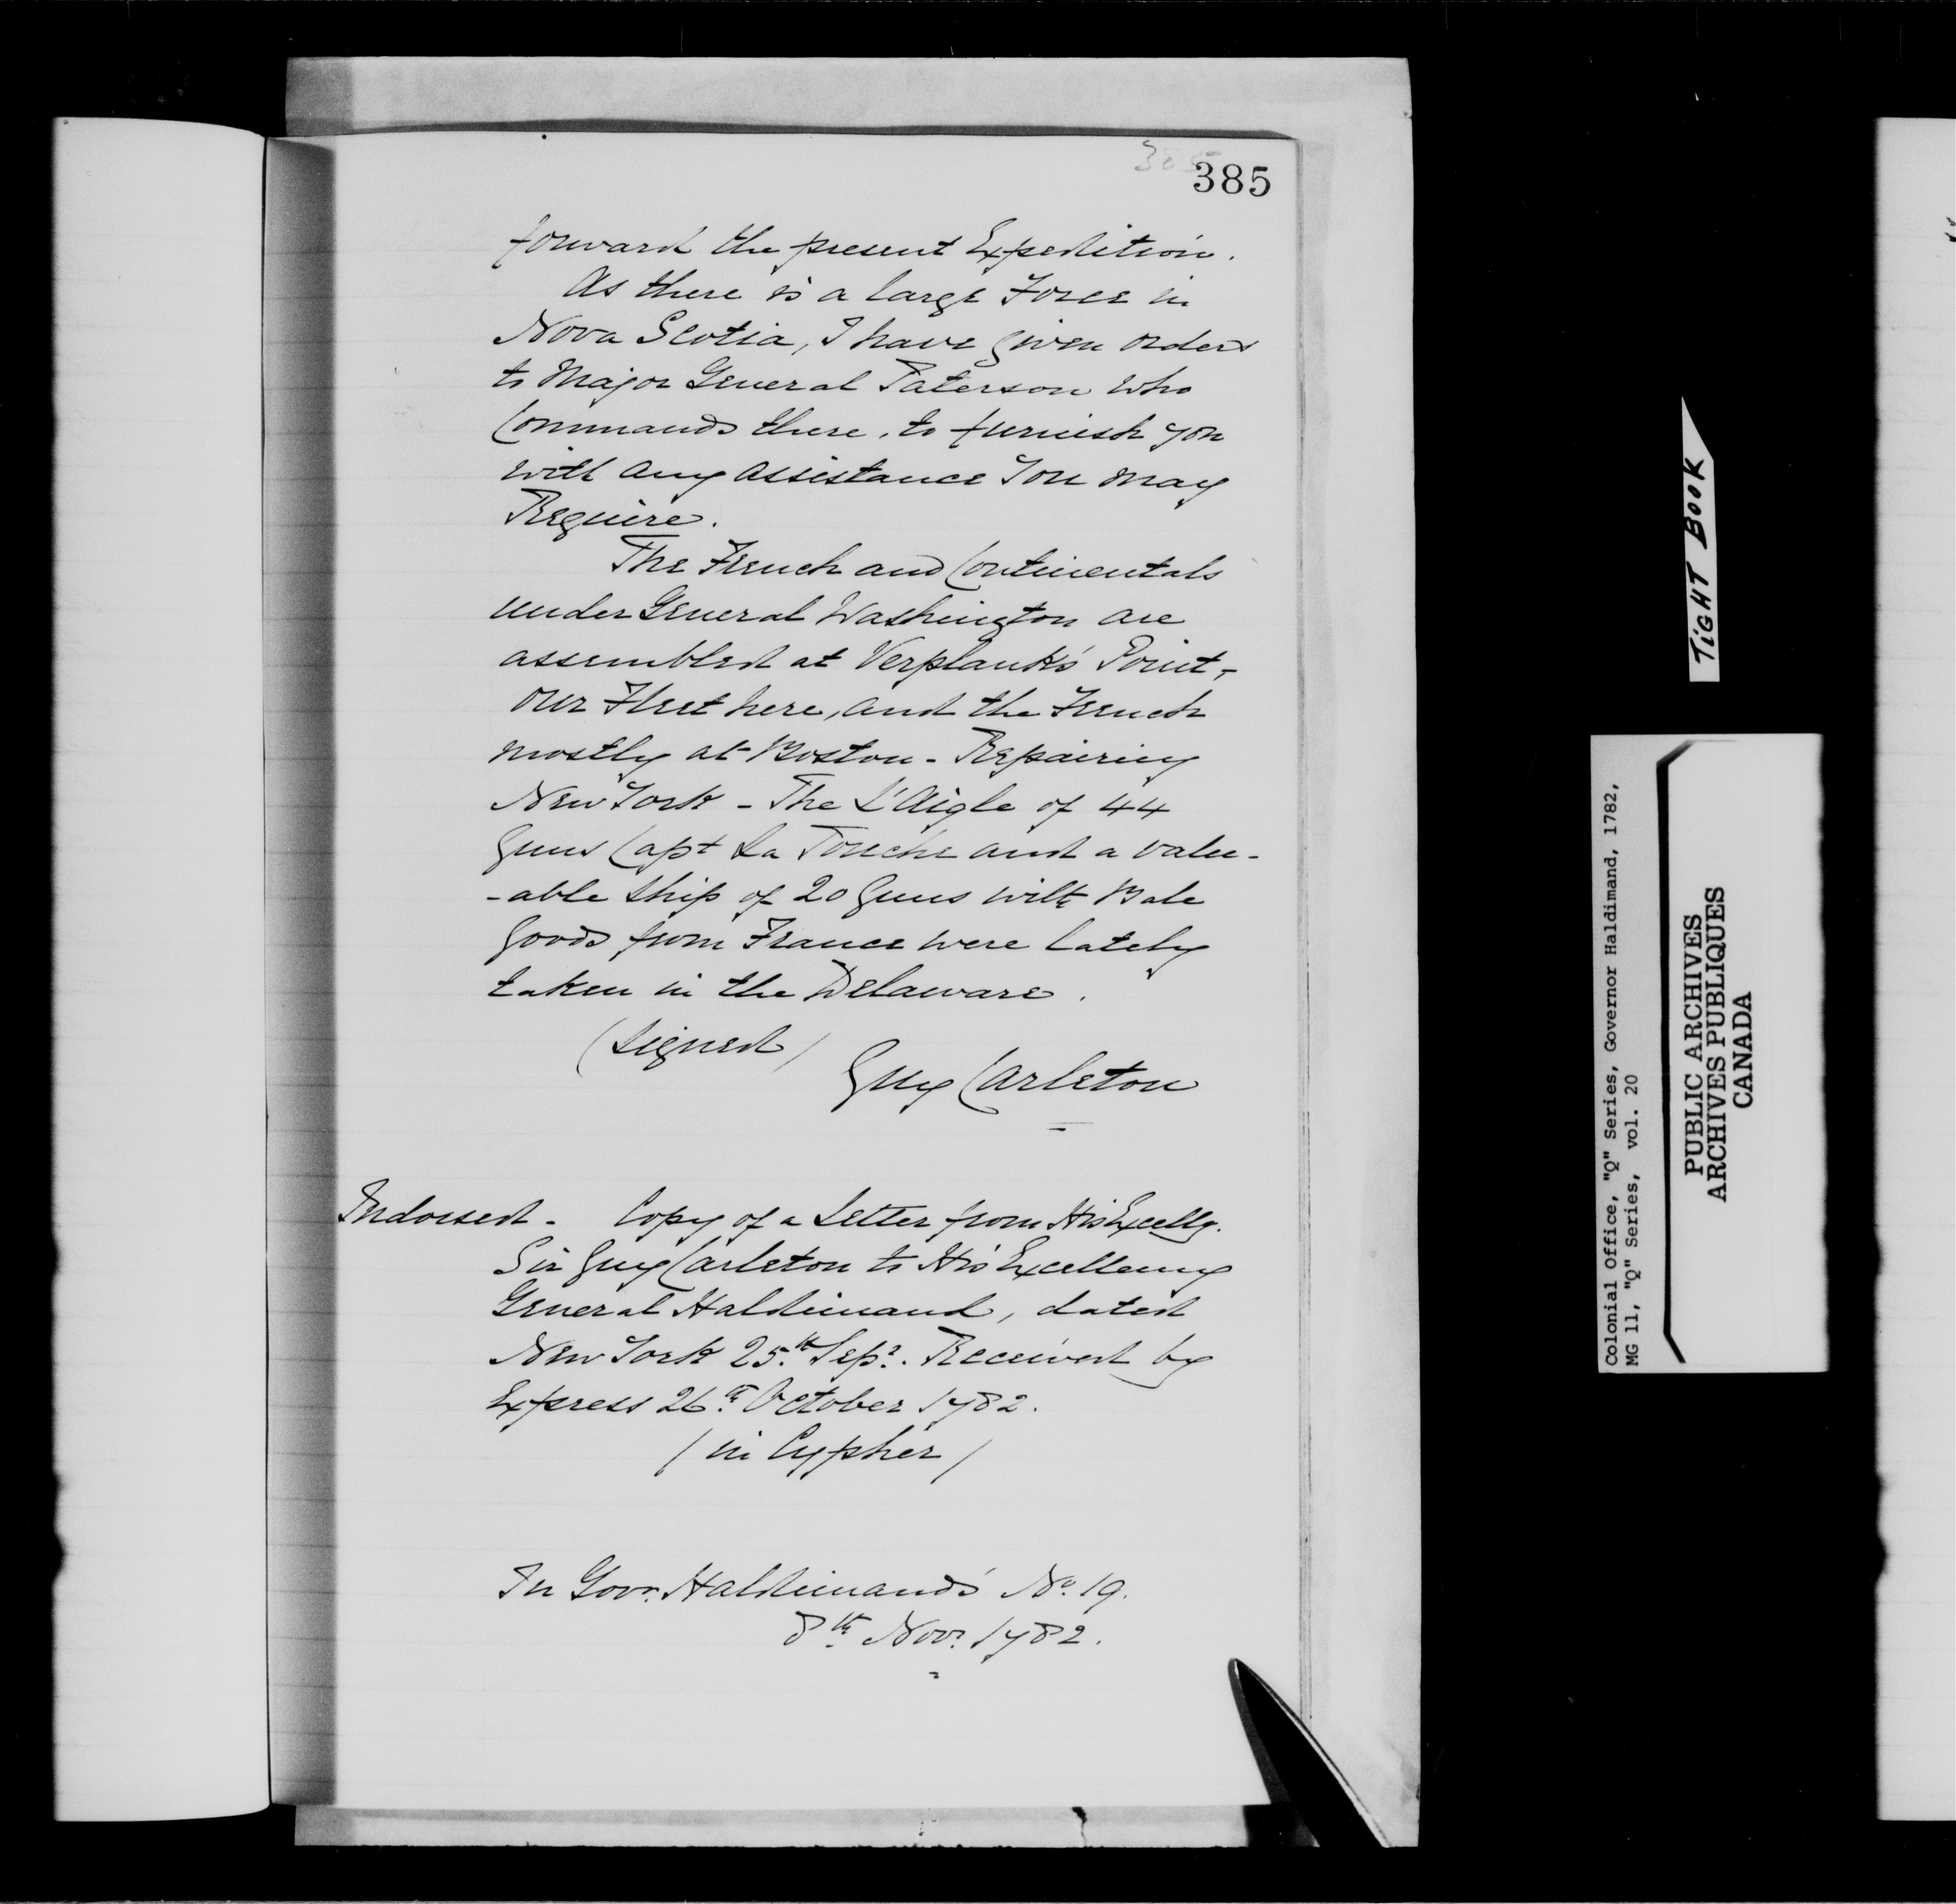 385
385
forward the present Expedition.
As there is a large Force in
Nova Scotia, I have given orders
to Major General Paterson who
Commands there, to furnish you
with any assistance You may
Require.
The French and Continentals
under General Washington are
assembled at Verplank's Point -
our Fleet here, and the French
mostly at Boston - Repairing
New York - The L'Aigle of 44
Guns Capt La Touche and a valu-
-able Ship of 20 Guns with Bale
Goods from France were lately
taken in the Delaware.
(Signed)
Guy Carleton
Indorsed - Copy of a Letter from His Excelly.
Sir Guy Carleton to His Excellency
General Haldimand, dated
New York 25.th Sepr. Received by
Express 26.th October 1782.
/ in Cypher /
In Govr. Haldimand's No. 19.
8th Novr. 1782.
TiGHT BOOK
Colonial Office, "Q" Series, Governor Haldimand, 1782,
MG 11, "Q" Series, vol. 20
PUBLIC ARCHIVES
ARCHIVES PUBLIQUES
CANADA